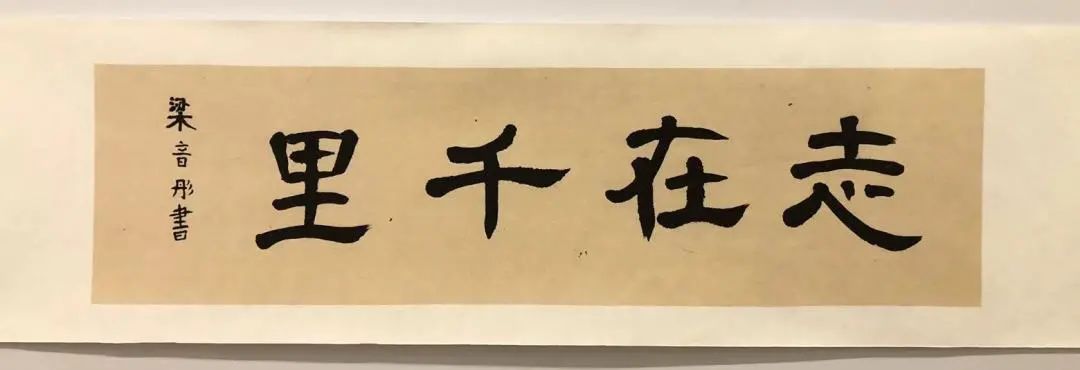 志在千里
梁音彤書